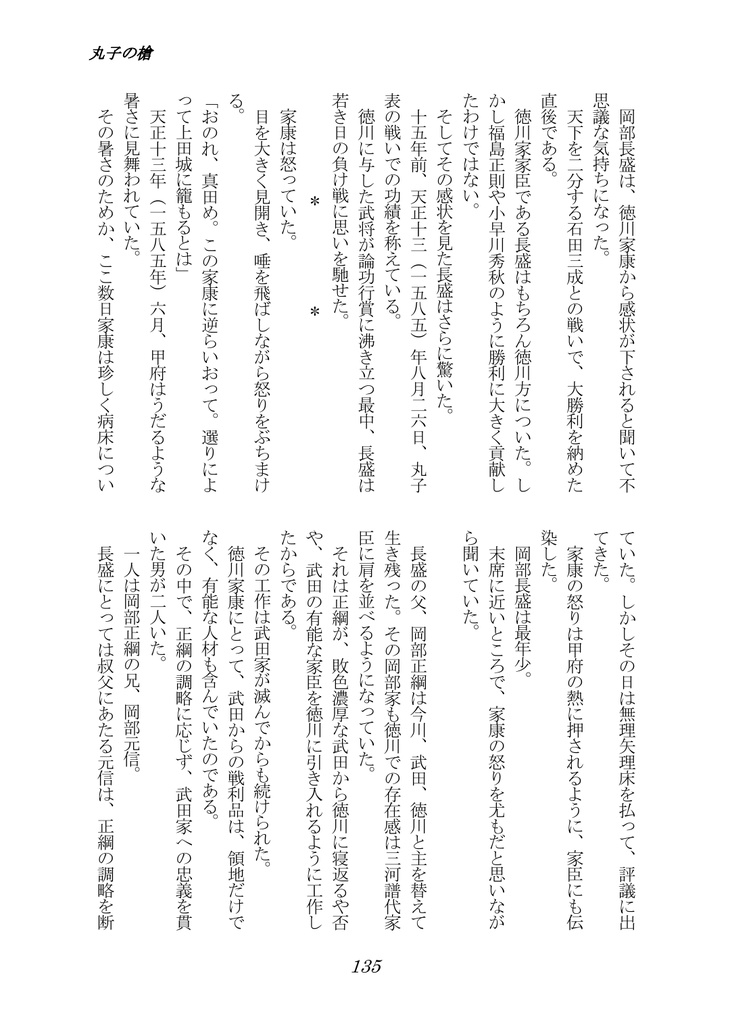 丸子の槍
　岡部長盛は、徳川家康から感状が下されると聞いて不
思議な気持ちになった。
　天下を二分する石田三成との戦いで、大勝利を納めた
直後である。
　徳川家家臣である長盛はもちろん徳川方についた。し
かし福島正則や小早川秀秋のように勝利に大きく貢献し
たわけではない。
　そしてその感状を見た長盛はさらに驚いた。
　十五年前、天正十三（一五八五）年八月二六日、丸子
表の戦いでの功績を称えている。
　徳川に与した武将が論功行賞に沸き立つ最中、長盛は
若き日の負け戦に思いを馳せた。
＊　　　＊
　家康は怒っていた。
　目を大きく見開き、唾を飛ばしながら怒りをぶちまけ
る。
「おのれ、真田め。この家康に逆らいおって。選りによ
って上田城に籠もるとは」
　天正十三年（一五八五年）六月、甲府はうだるような
暑さに見舞われていた。
　その暑さのためか、ここ数日家康は珍しく病床につい
ていた。しかしその日は無理矢理床を払って、評議に出
てきた。
　家康の怒りは甲府の熱に押されるように、家臣にも伝
染した。
　岡部長盛は最年少。
　末席に近いところで、家康の怒りを尤もだと思いなが
ら聞いていた。
　長盛の父、岡部正綱は今川、武田、徳川と主を替えて
生き残った。その岡部家も徳川での存在感は三河譜代家
臣に肩を並べるようになっていた。
　それは正綱が、敗色濃厚な武田から徳川に寝返るや否
や、武田の有能な家臣を徳川に引き入れるように工作し
たからである。
　その工作は武田家が滅んでからも続けられた。
　徳川家康にとって、武田からの戦利品は、領地だけで
なく、有能な人材も含んでいたのである。
　その中で、正綱の調略に応じず、武田家への忠義を貫
いた男が二人いた。
　一人は岡部正綱の兄、岡部元信。
　長盛にとっては叔父にあたる元信は、正綱の調略を断
135